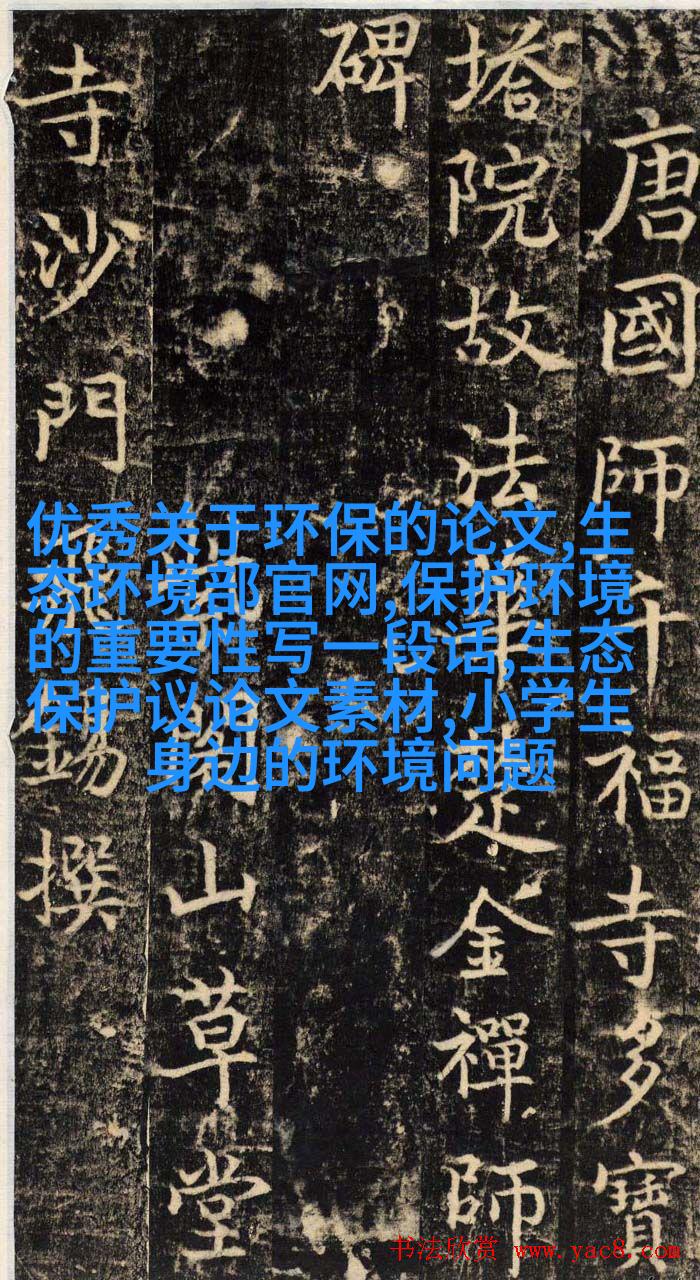 唐國師千福寺多寶
塔院故法華楚金禪師
碑
山草堂
寺沙門飛錫撰
优秀关于环保的论文,生
态环境部官网,保护环境
的重要性写一段话,生态
保护议论文素材,小学生
身边的环境问题
书法欣赏 www.yac8.com